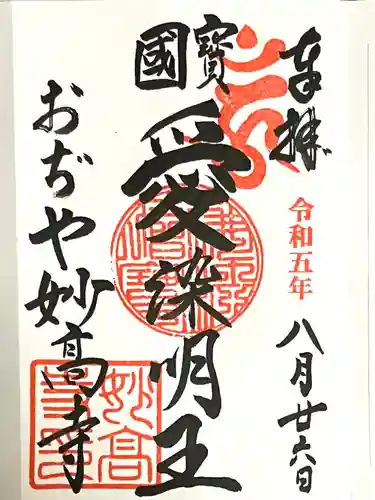 奉拝
令和五年
八月廿六日
寳國
愛染明王
おぢや妙高寺
妙高